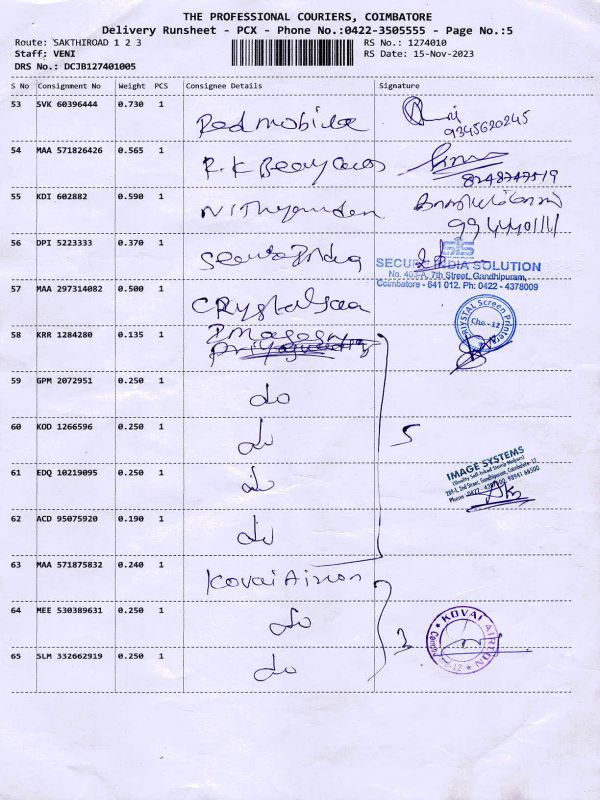 THE PROFESSIONAL COURIERS, COIMBATORE
Delivery Runsheet - PCX - Phone No.:0422-3505555 - Page No.:5
Route: SAKTHIROAD 1 2 3 RS No.: 1274010
Staff: VENI RS Date: 15-Nov-2023
DRS No.: DCJB127401005
S No Consignment No Weight PCS Consignee Details Signature
53 SVK 60396444 0.730 1 Redmobile
9345620245
54 MAA 571826426 0.565 1 R.K Beauy
8248747519
55 KDI 602882 0.590 1
9944401111
56 DPI 5223333 0.370 1 India
SECURE INDIA SOLUTION
No. 403-A, 7th Street, Gandhipuram,
Coimbatore - 641 012. Ph: 0422 - 4378009
57 MAA 297314082 0.500 1 Crystal
CRYSTAL Screen Printers
Cbe.-12
58 KRR 1284280 0.135 1
59 GPM 2072951 0.250 1 do
60 KOD 1266596 0.250 1 do 5
61 EDQ 10219095 0.250 1 do
IMAGE SYSTEMS
62 ACD 95075920 0.190 1 do
63 MAA 571875832 0.240 1 Kovai Aircon
64 MEE 530389631 0.250 1 do 3
KOVAI AIRCON
65 SLM 332662919 0.250 1 do